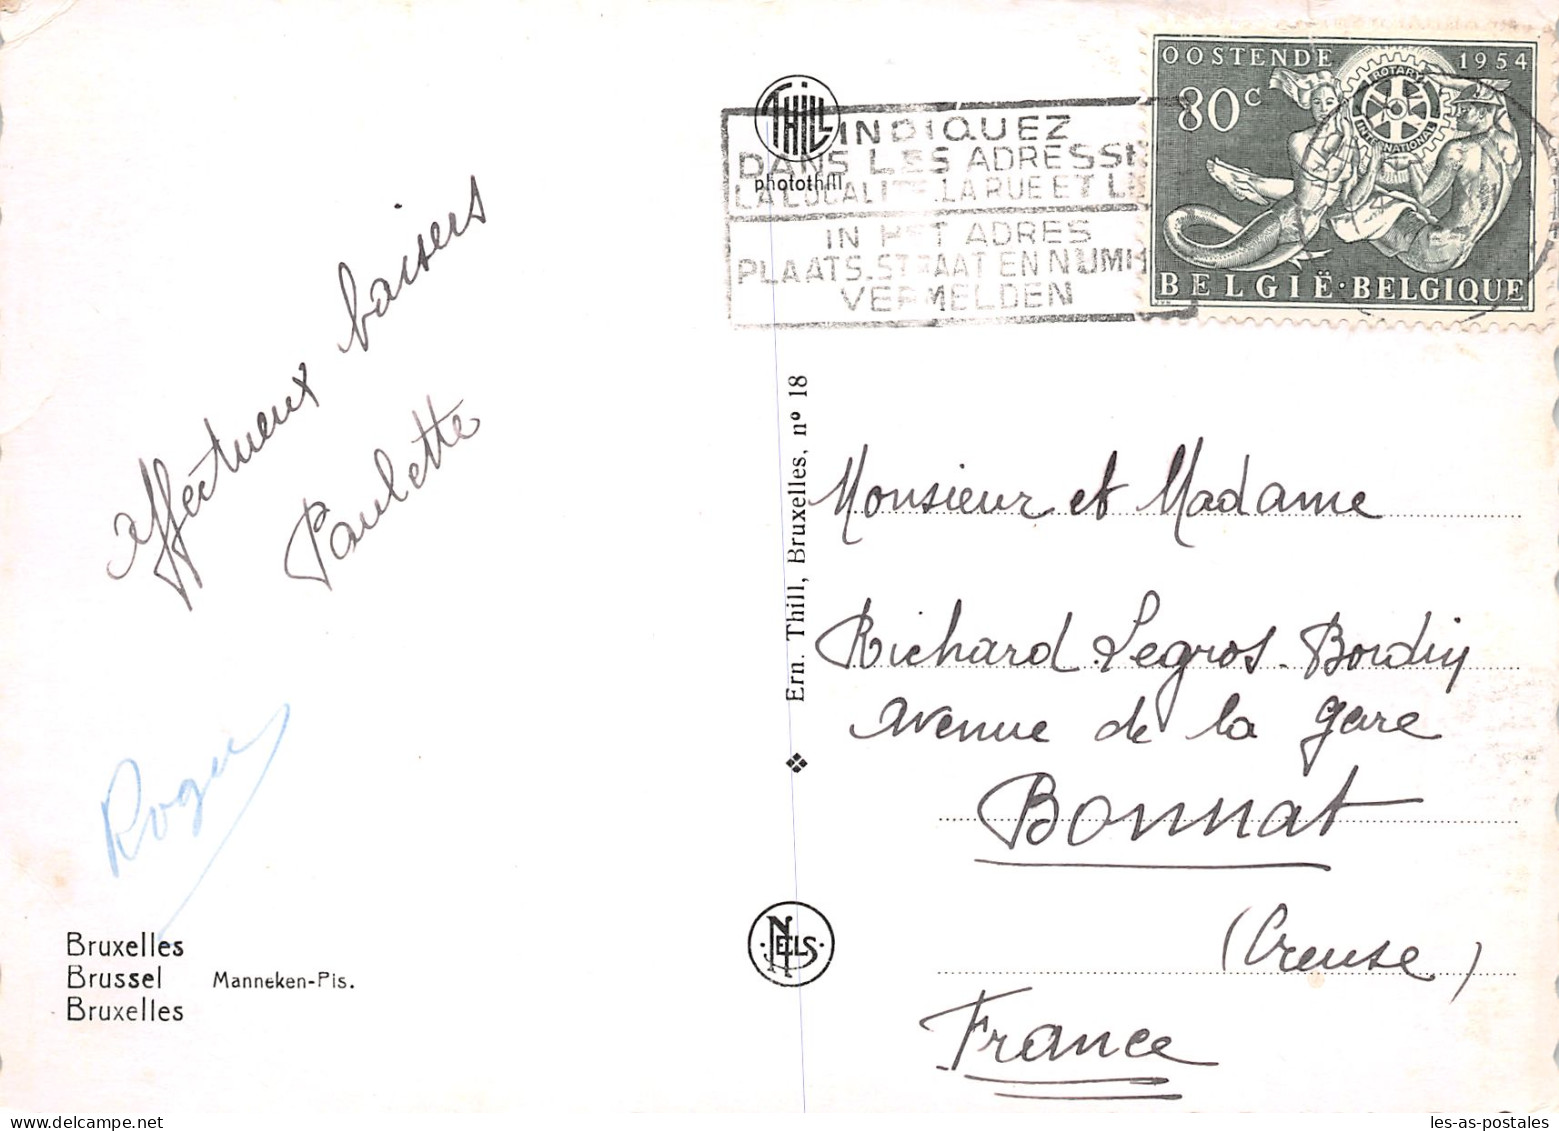 OOSTENDE 1954
80c
ROTARY
INTERNATIONAL
BELGIË·BELGIQUE
THILL
photothill
INDIQUEZ
DANS LES ADRESS
LA LOCALITE.LA RUE ET LE
IN HET ADRES
PLAATS.STRAAT EN NUM
VERMELDEN
affectueux baisers
Paulette
Roger
Bruxelles
Brussel Manneken-Pis.
Bruxelles
Ern. Thill, Bruxelles, nº 18
NELS
Monsieur et Madame
Richard Legros. Bordin
avenue de la gare
Bonnat
(Creuse)
France
les-as-postales